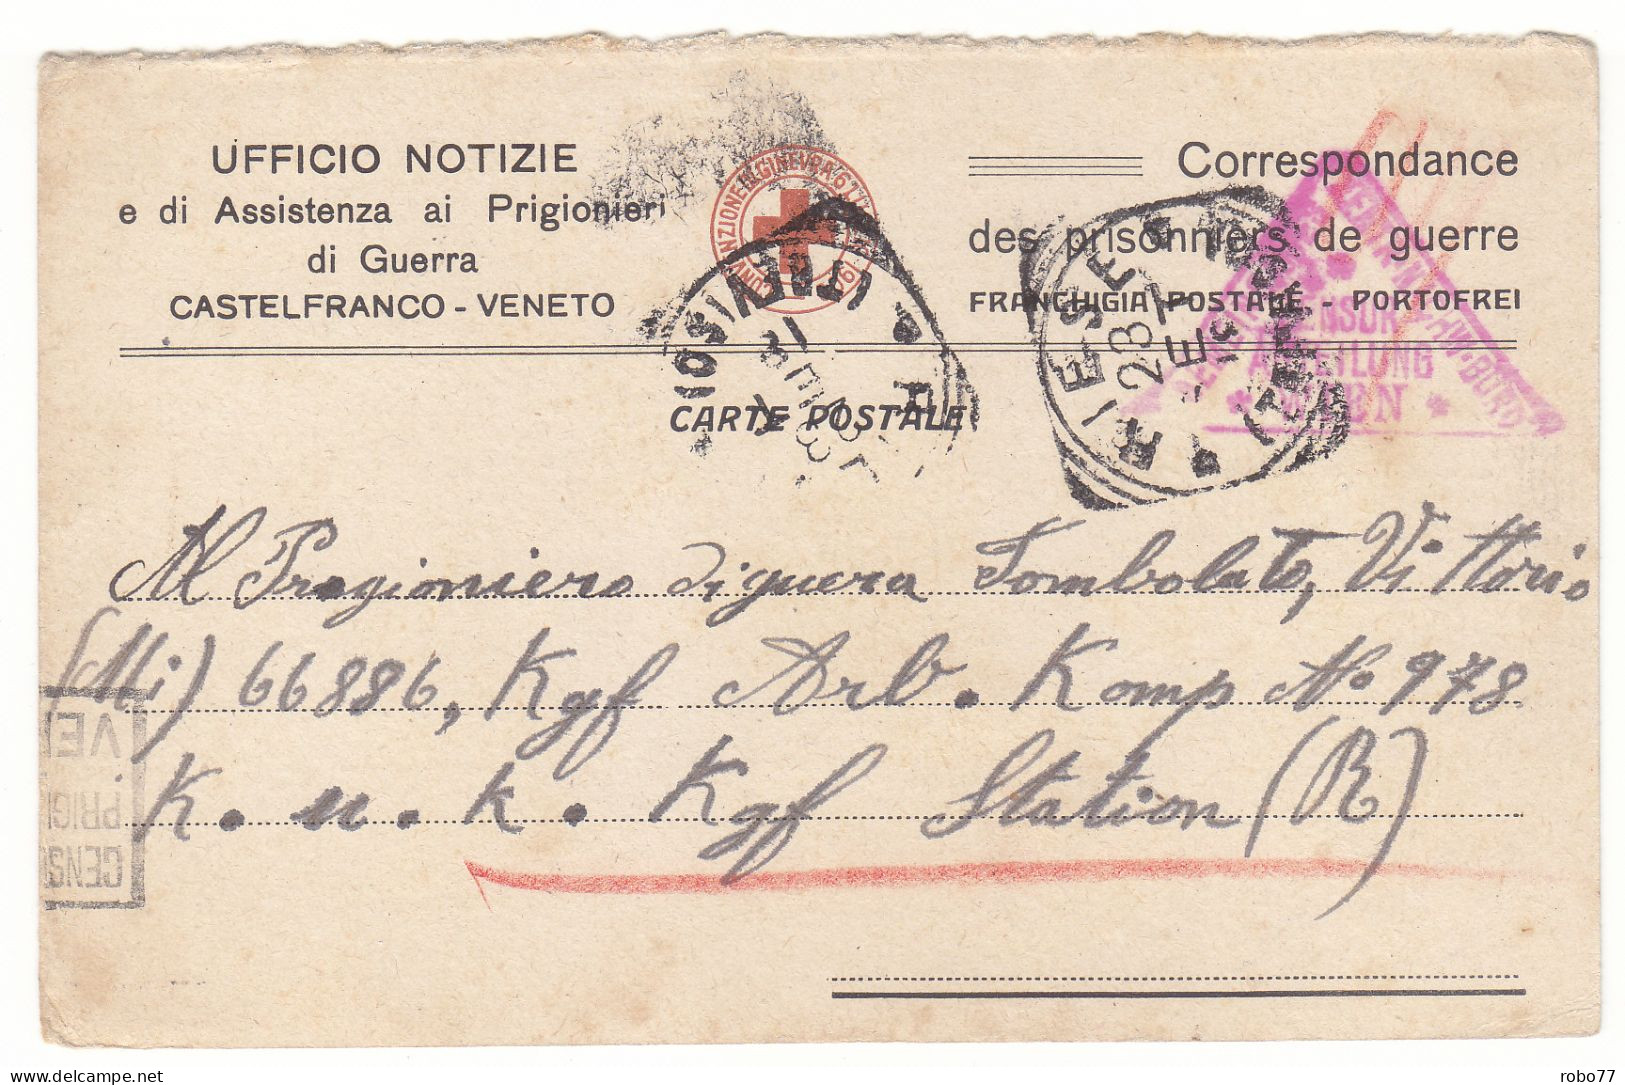 UFFICIO NOTIZIE
e di Assistenza ai Prigionieri
di Guerra
CASTELFRANCO - VENETO
Correspondance
des prisonniers de guerre
FRANCHIGIA POSTALE - PORTOFREI
CARTE POSTALE
RIESE
28
ZENSUR
ABTEILUNG
WIEN
Al Pregioniero di guera Tombolato, Vittorio
(Mi) 66886, Kgf Arb. Komp No 978
K. u. k. Kgf Station (R)
VE
PRIGI
CENS
delcampe.net
robo77